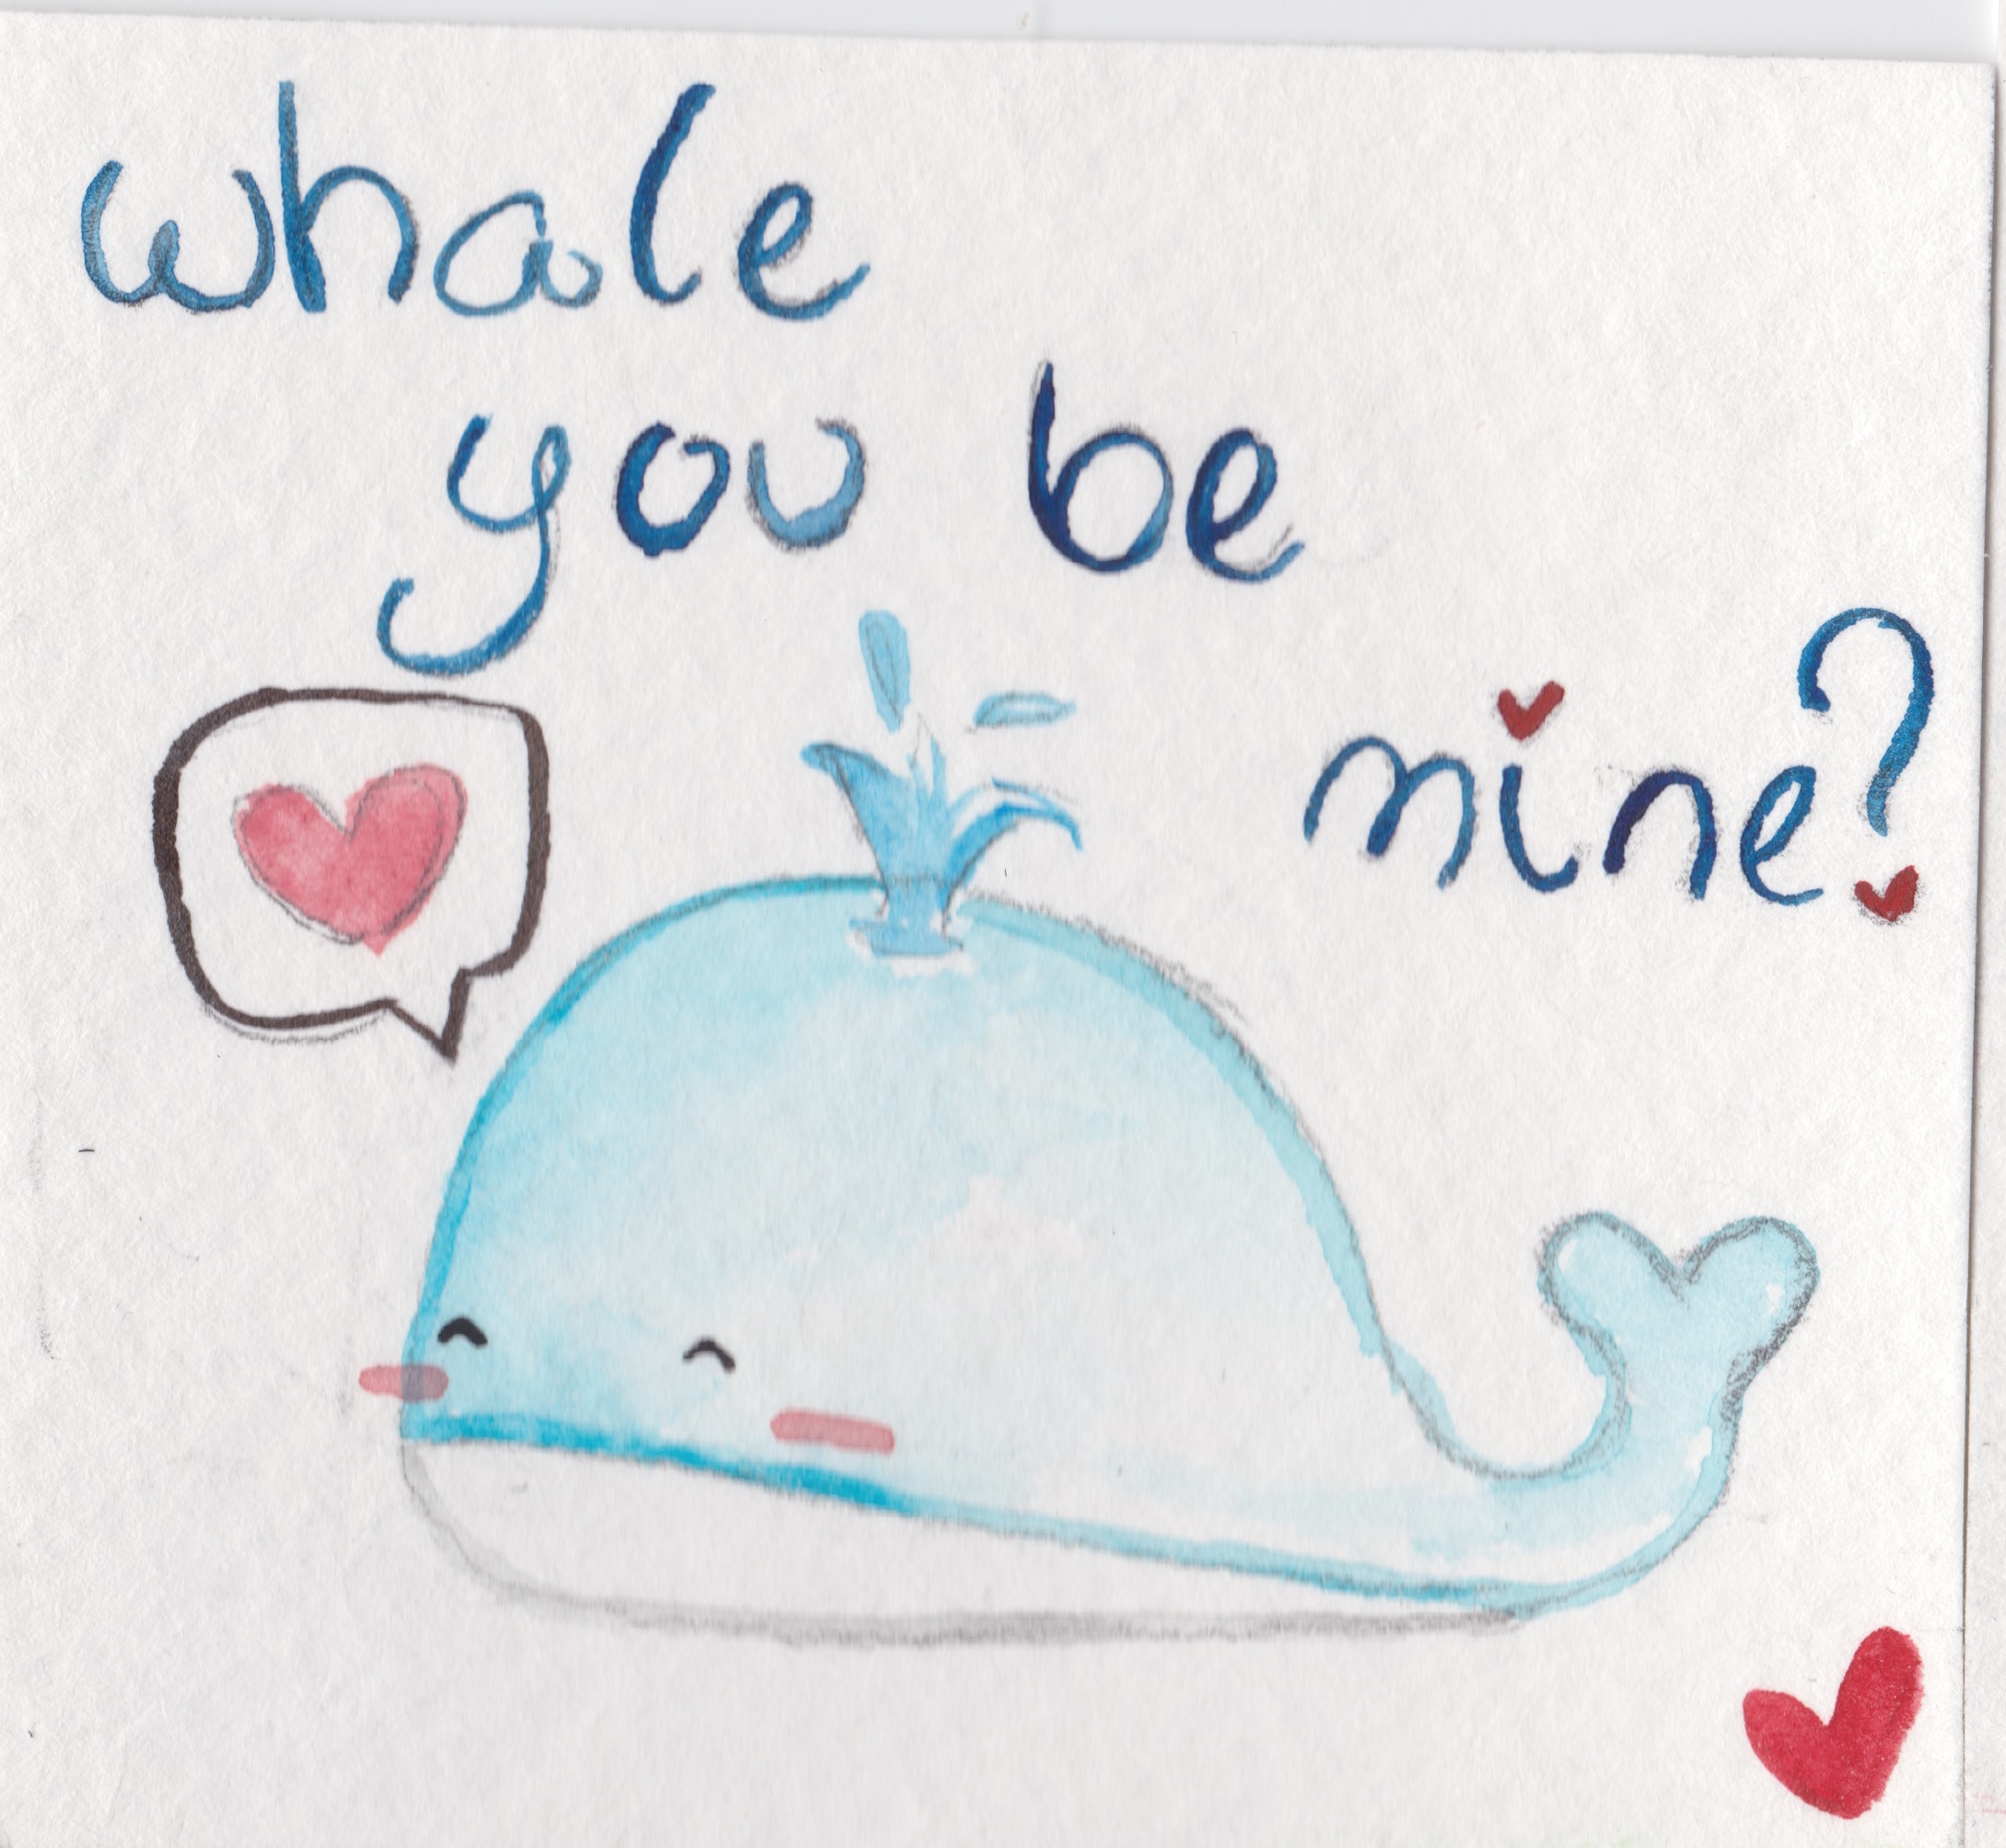 whale
you be
mine?